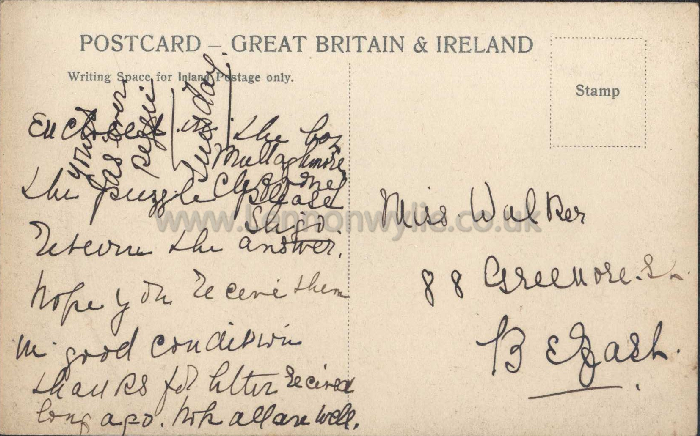 POSTCARD – GREAT BRITAIN & IRELAND
Writing Space for Inland Postage only.
Stamp
Tuesday.
Mullaghmore
Cliffoney
Sligo
Enclosed in the box
the puzzle please
return the answer.
hope you receive them
in good condition
thanks for letter recived
long ago. hope all are well.
yours
as ever
Miss. Walker
88 Greenore. St.
Belfast.
www.lennonwylie.co.uk